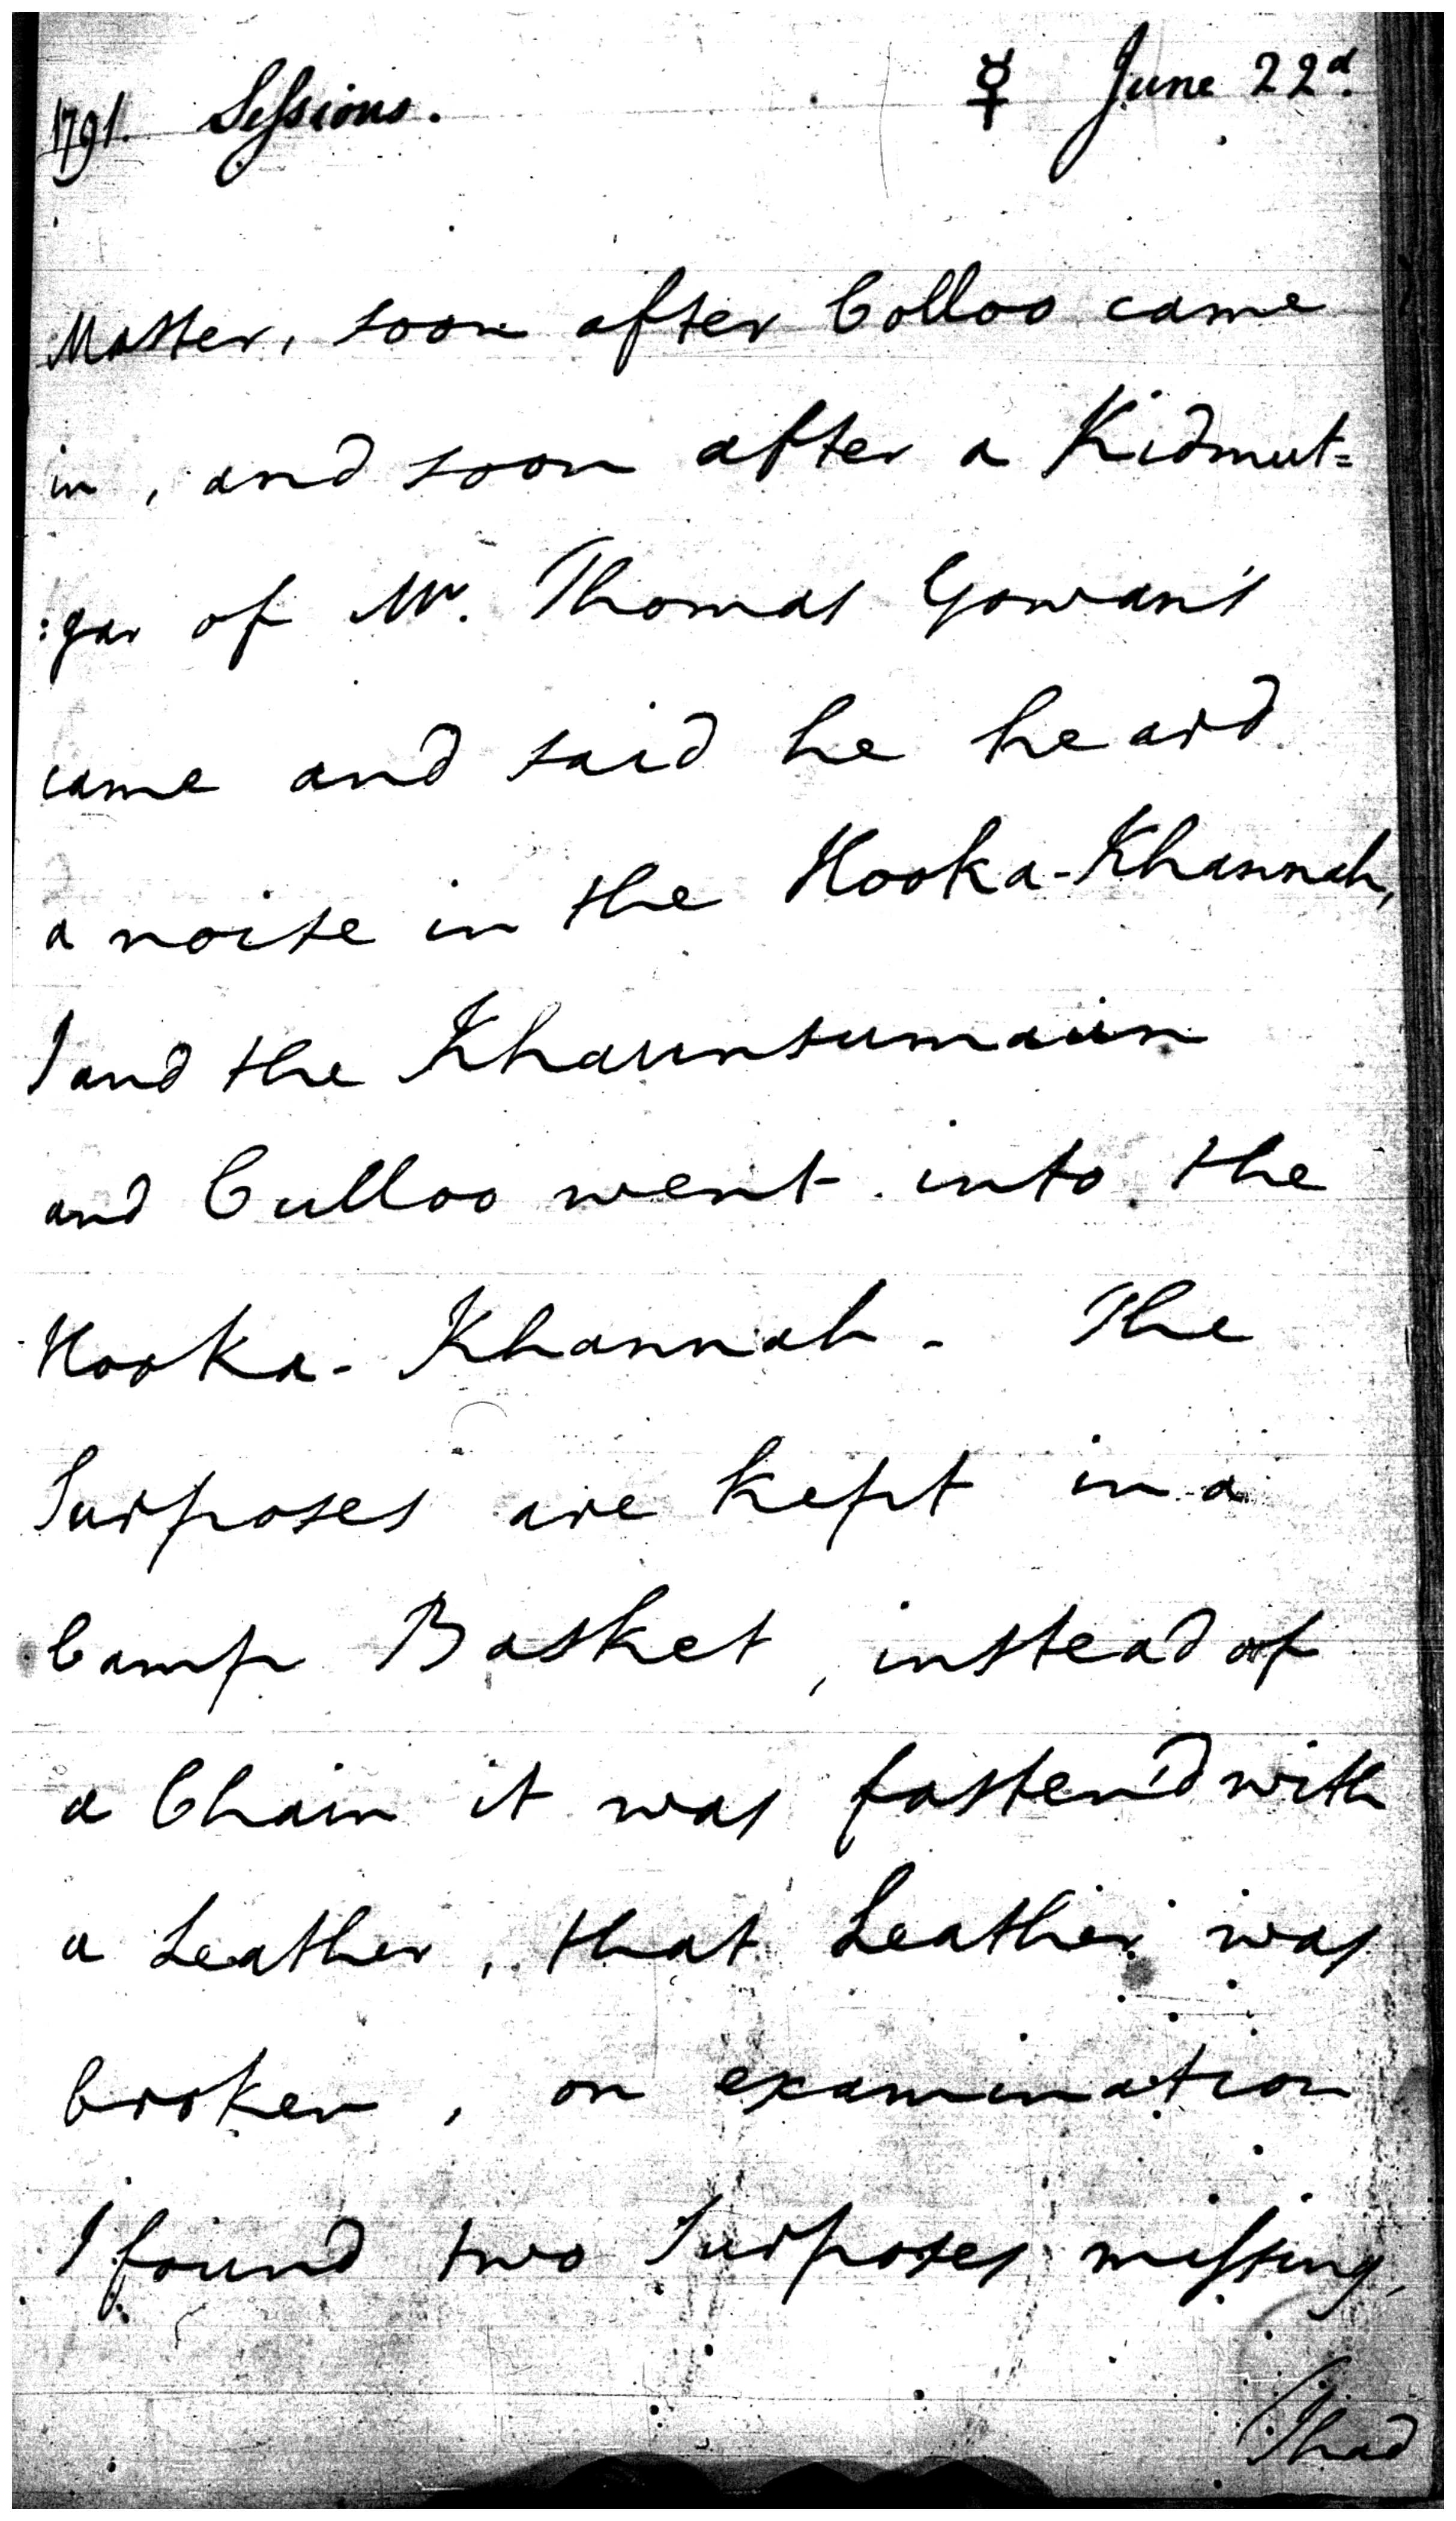 1791. Sessions. ☿ June 22d.
Master, soon after Colloo came
in, and soon after a Kidmut=
:gar of Mr. Thomas Gowan's
came and said he heard
a noise in the Hooka-Khannah,
I and the Khaunsumaun
and Culloo went into the
Hooka-Khannah - The
Surposes are kept in a
Camp Basket, instead of
a Chain it was fasten'd with
a Leather, that Leather was
broken, on examination
I found two Surposes missing,
I had